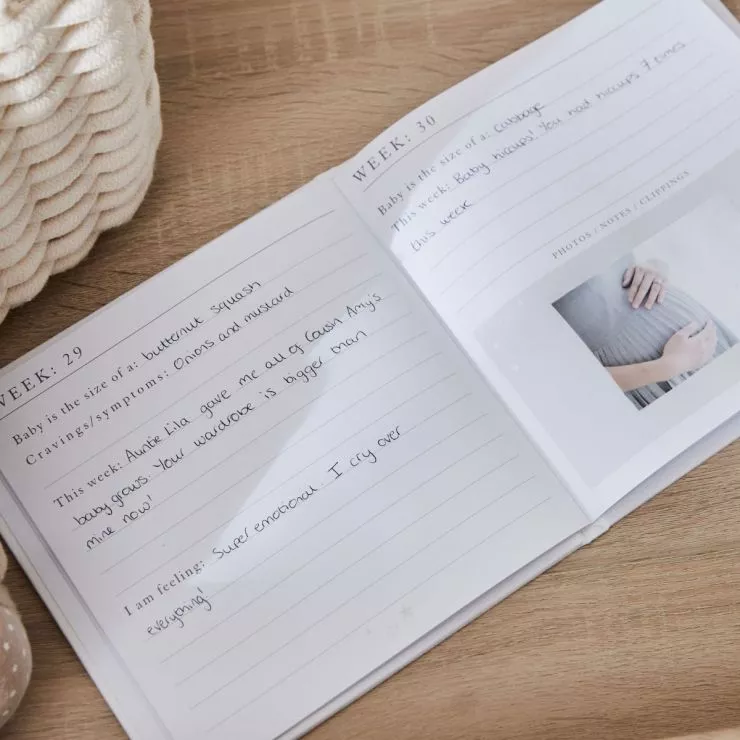 WEEK: 29
Baby is the size of a: butternut squash
Cravings/symptoms: Onions and mustard
This week: Auntie Lila gave me all of Cousin Amy's
baby grows. Your wardrobe is bigger than
mine now!
I am feeling: Super emotional. I cry over
everything!
WEEK: 30
Baby is the size of a: cabbage
This week: Baby hiccups! You had hiccups 7 times
this week
PHOTOS / NOTES / CLIPPINGS